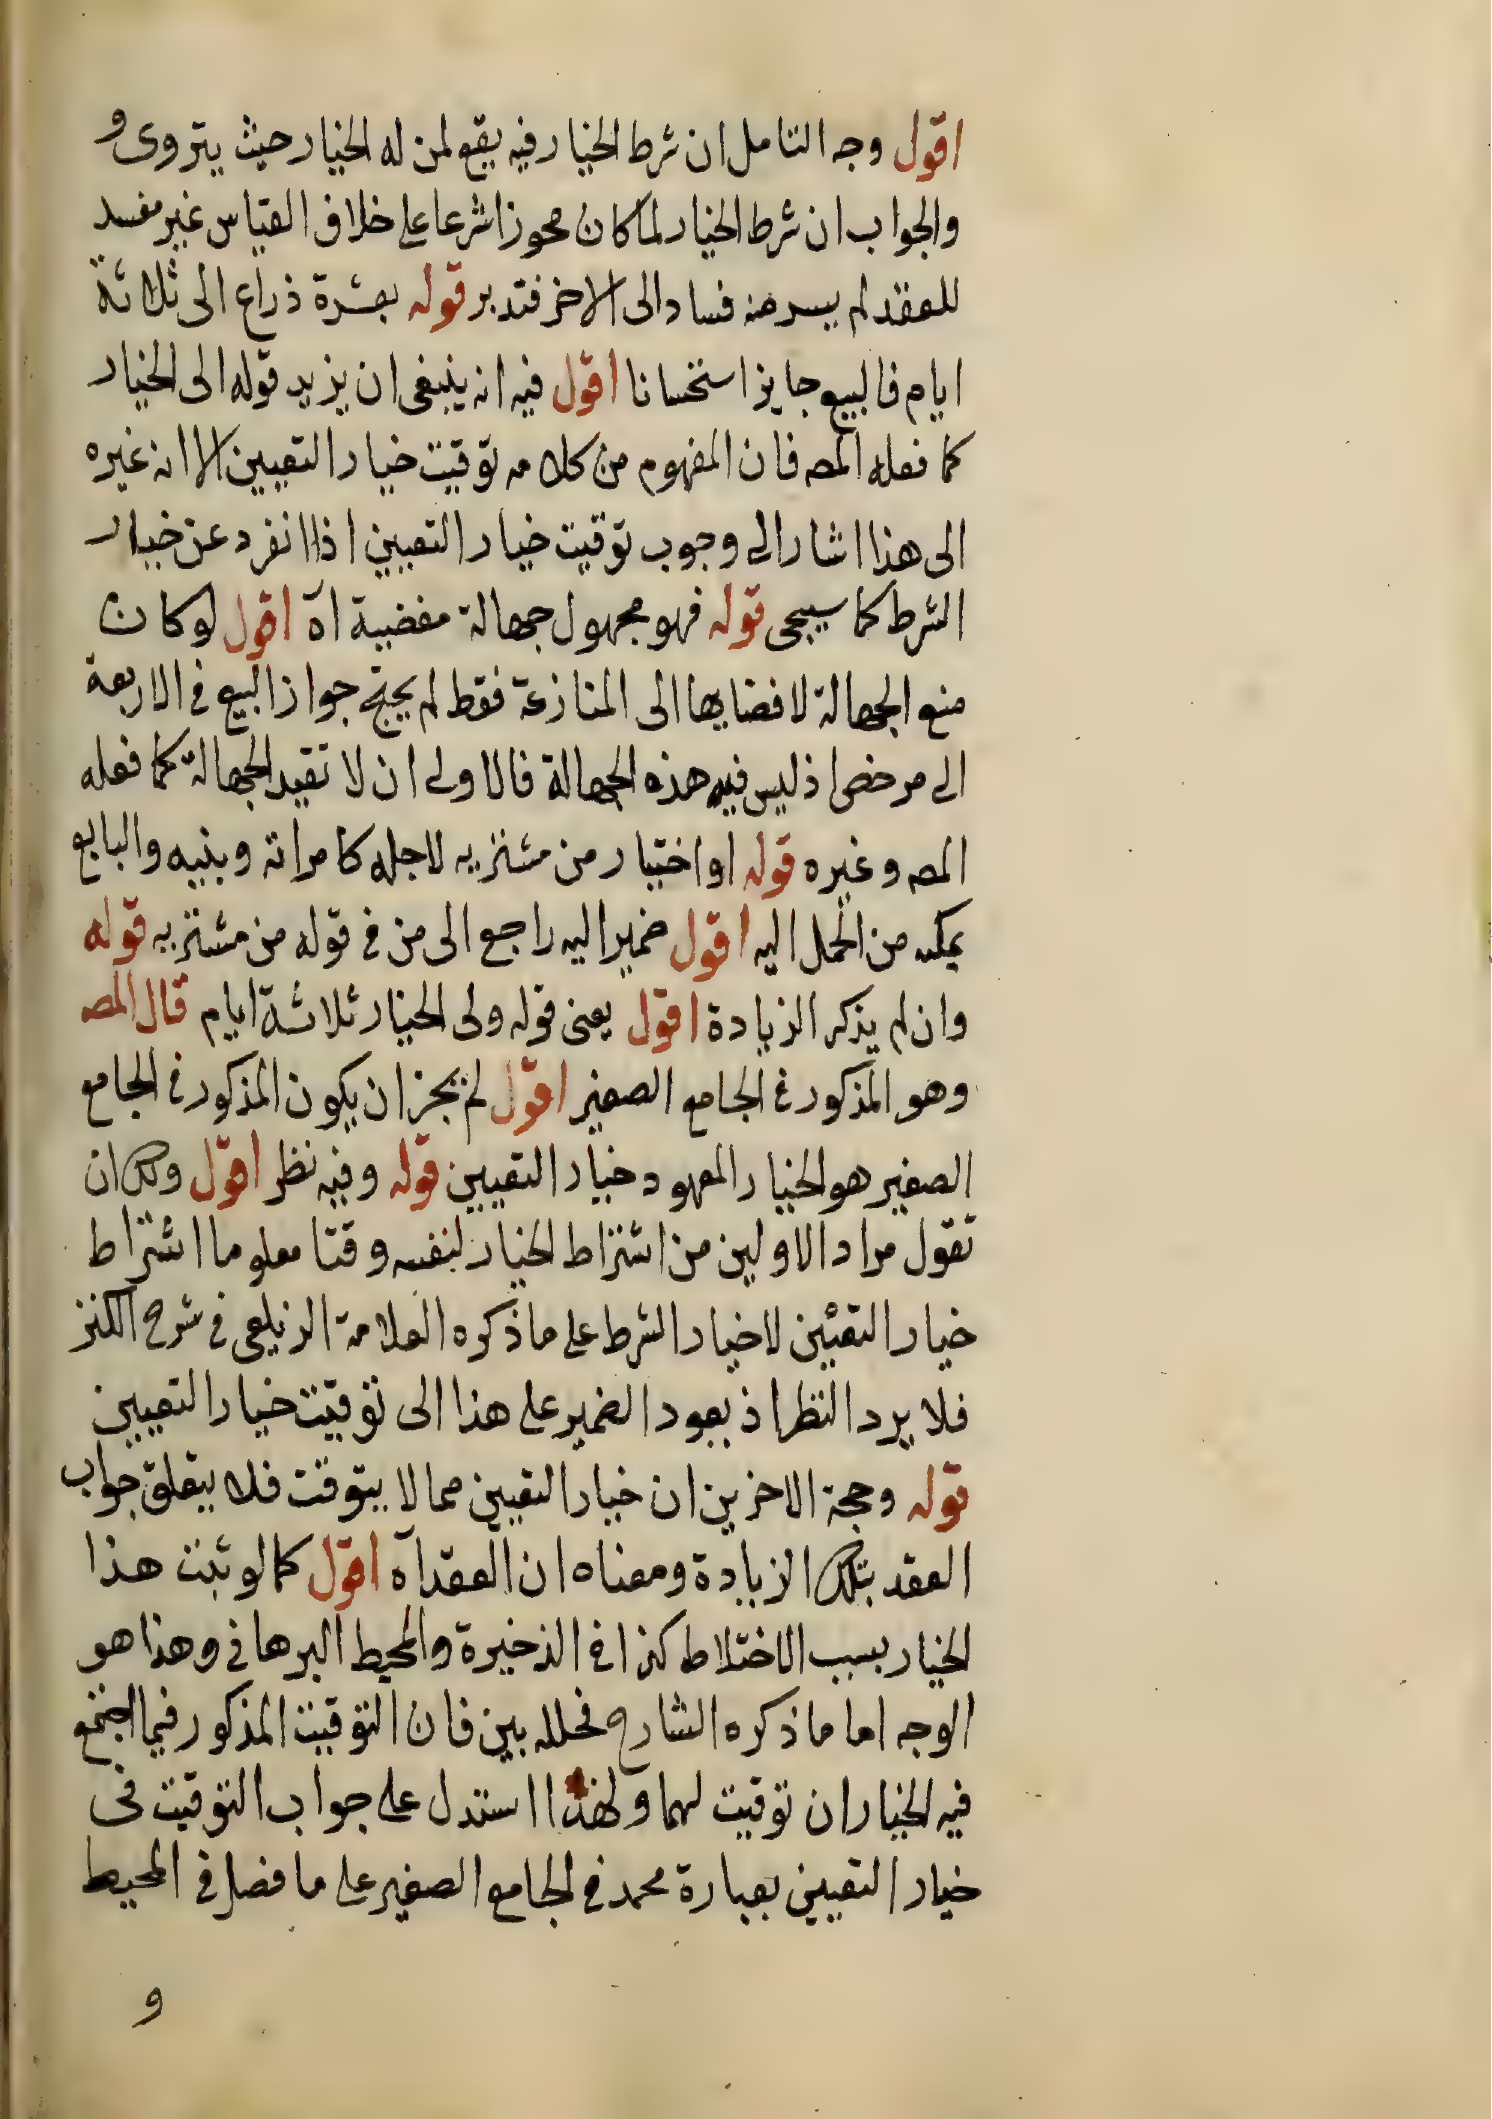 اقول وجه التامل ان شرط الخيار فيه يقع لمن له الخيار حيث يتروى و
والجواب ان شرط الخيار لما كان مجوزا شرعا على خلاف القياس غير مفسد
للعقد لم يسر منه فساد الى الاخر فتدبر قوله بعشرة ذراع الى ثلاثة
ايام فالبيع جايز استحسانا اقول فيه انه ينبغى ان يزيد قوله الى الخيار
كما فعله المصه فان المفهوم من كلامه توقيت خيار التعيين الا انه غيره
الى هذا اشار الى وجوب توقيت خيار التعيين اذا انفرد عن خيار
الشرط كما سيجى قوله فهو مجهول جهالة مفضية اه اقول لو كان
منع الجهالة لافضايها الى المنازعة فقط لم يحتج جواز البيع فى الاربعة
الى مرخص اذ ليس فيه هذه الجهالة فالاولى ان لا تقيد الجهالة كما فعله
المصه وغيره قوله او اختيار من مشتريه لاجله كامراته وبنيه والبايع
يمكنه من الحمل اليه اقول ضمير اليه راجع الى من فى قوله من مشتريه قوله
وان لم يذكر الزيادة اقول يعنى قوله ولى الخيار ثلاثة ايام قال المصه
وهو المذكور فى الجامع الصغير اقول لم يجز ان يكون المذكور فى الجامع
الصغير هو الخيار المعهود خيار التعيين قوله وفيه نظر اقول ولك ان
تقول مراد الاولين من اشتراط الخيار لنفسه وقتا معلوما اشتراط
خيار التعيين لا خيار الشرط على ما ذكره العلامة الزيلعى فى شرح الكنز
فلا يرد النظر اذ يعود الضمير على هذا الى توقيت خيار التعيين
قوله وحجة الاخرين ان خيار التعيين مما لا يتوقت فلا يتعلق جواب
العقد بتلك الزيادة ومعناه ان العقد اه اقول كما لو ثبت هذا
الخيار بسبب الاختلاط كذا فى الذخيرة والمحيط البرهانى وهذا هو
الوجه اما ما ذكره الشارح فخلله بين فان التوقيت المذكور فيما اجتمع
فيه الخياران توقيت لهما ولهذا استدل على جواب التوقيت فى
خيار التعيين بعبارة محمد فى الجامع الصغير على ما فصل فى المحيط
و